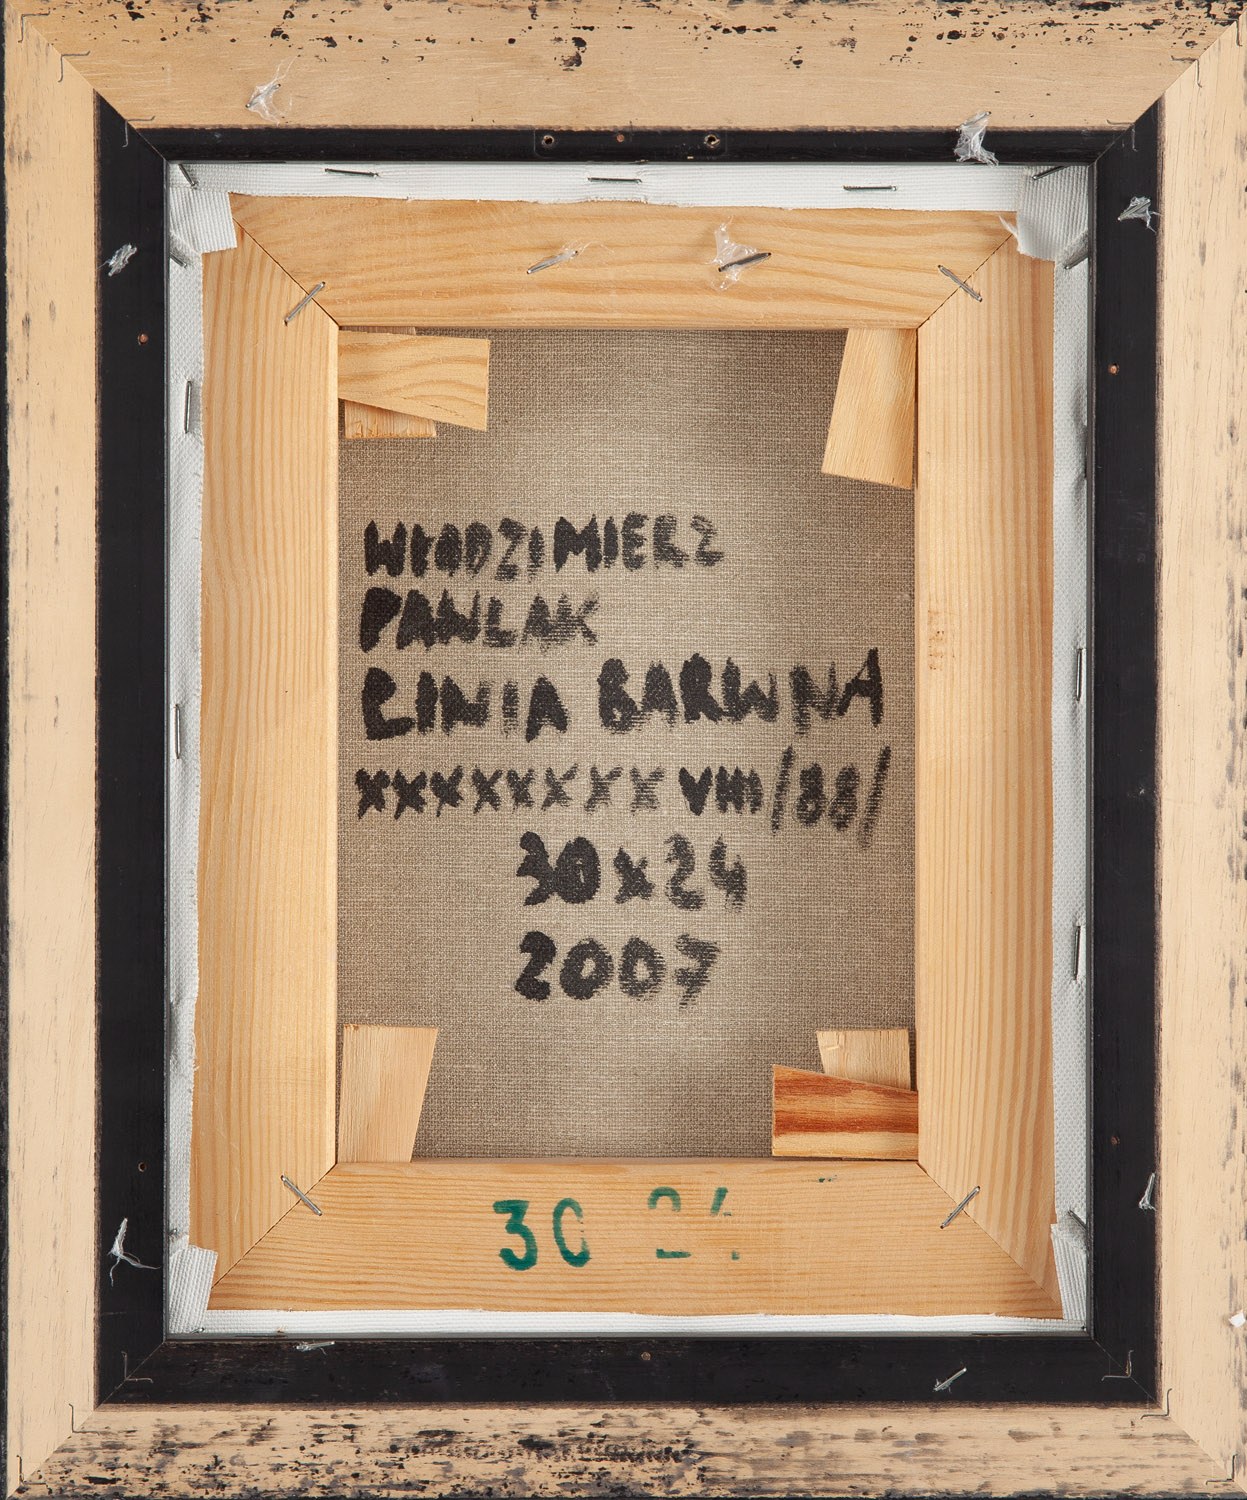 WŁODZIMIERZ
PAWLAK
LINIA BARWNA
XXXXXXXX VIII /88/
30 x 24
2007
30 24